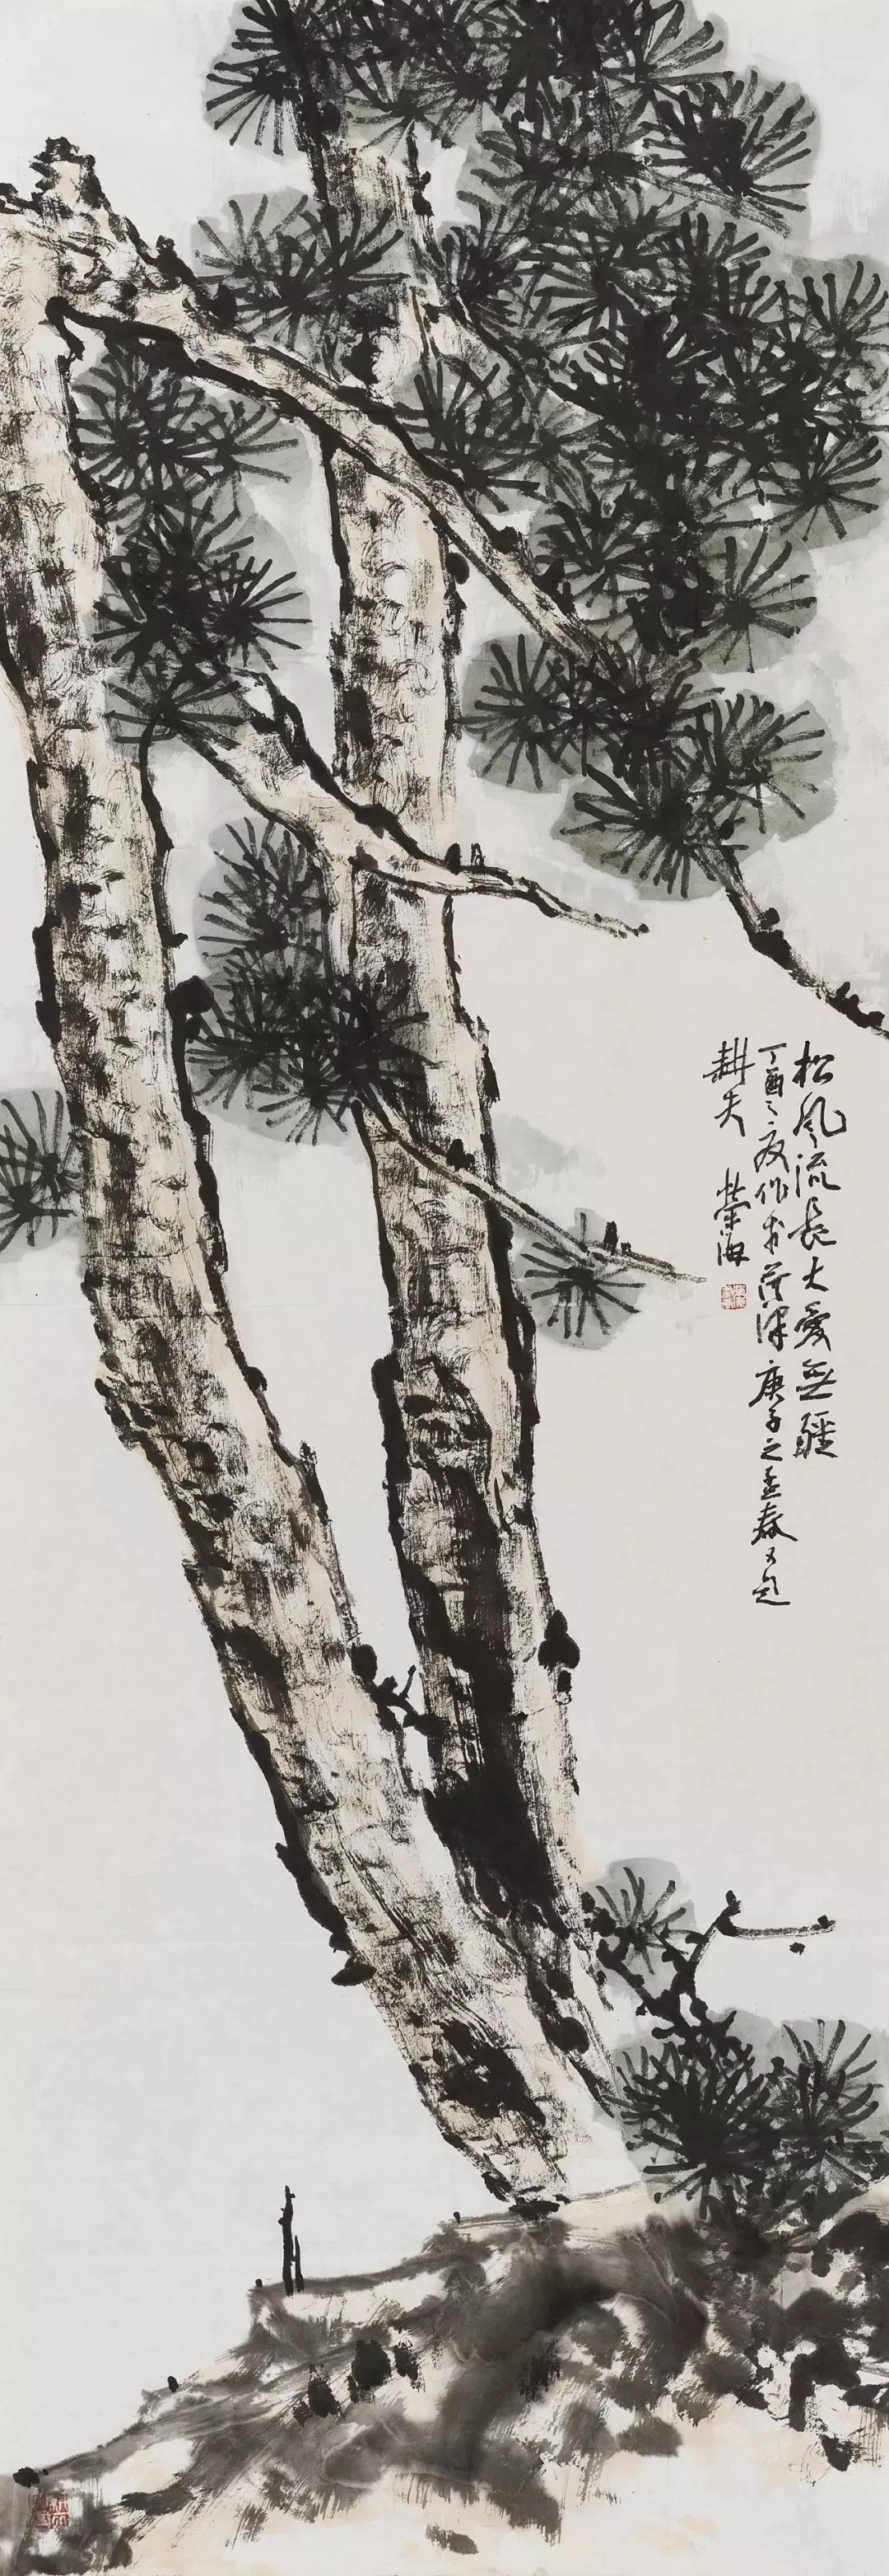 松风流长大爱无疆
丁酉之夜作于菏泽庚子之孟春又题
耕夫 荣海